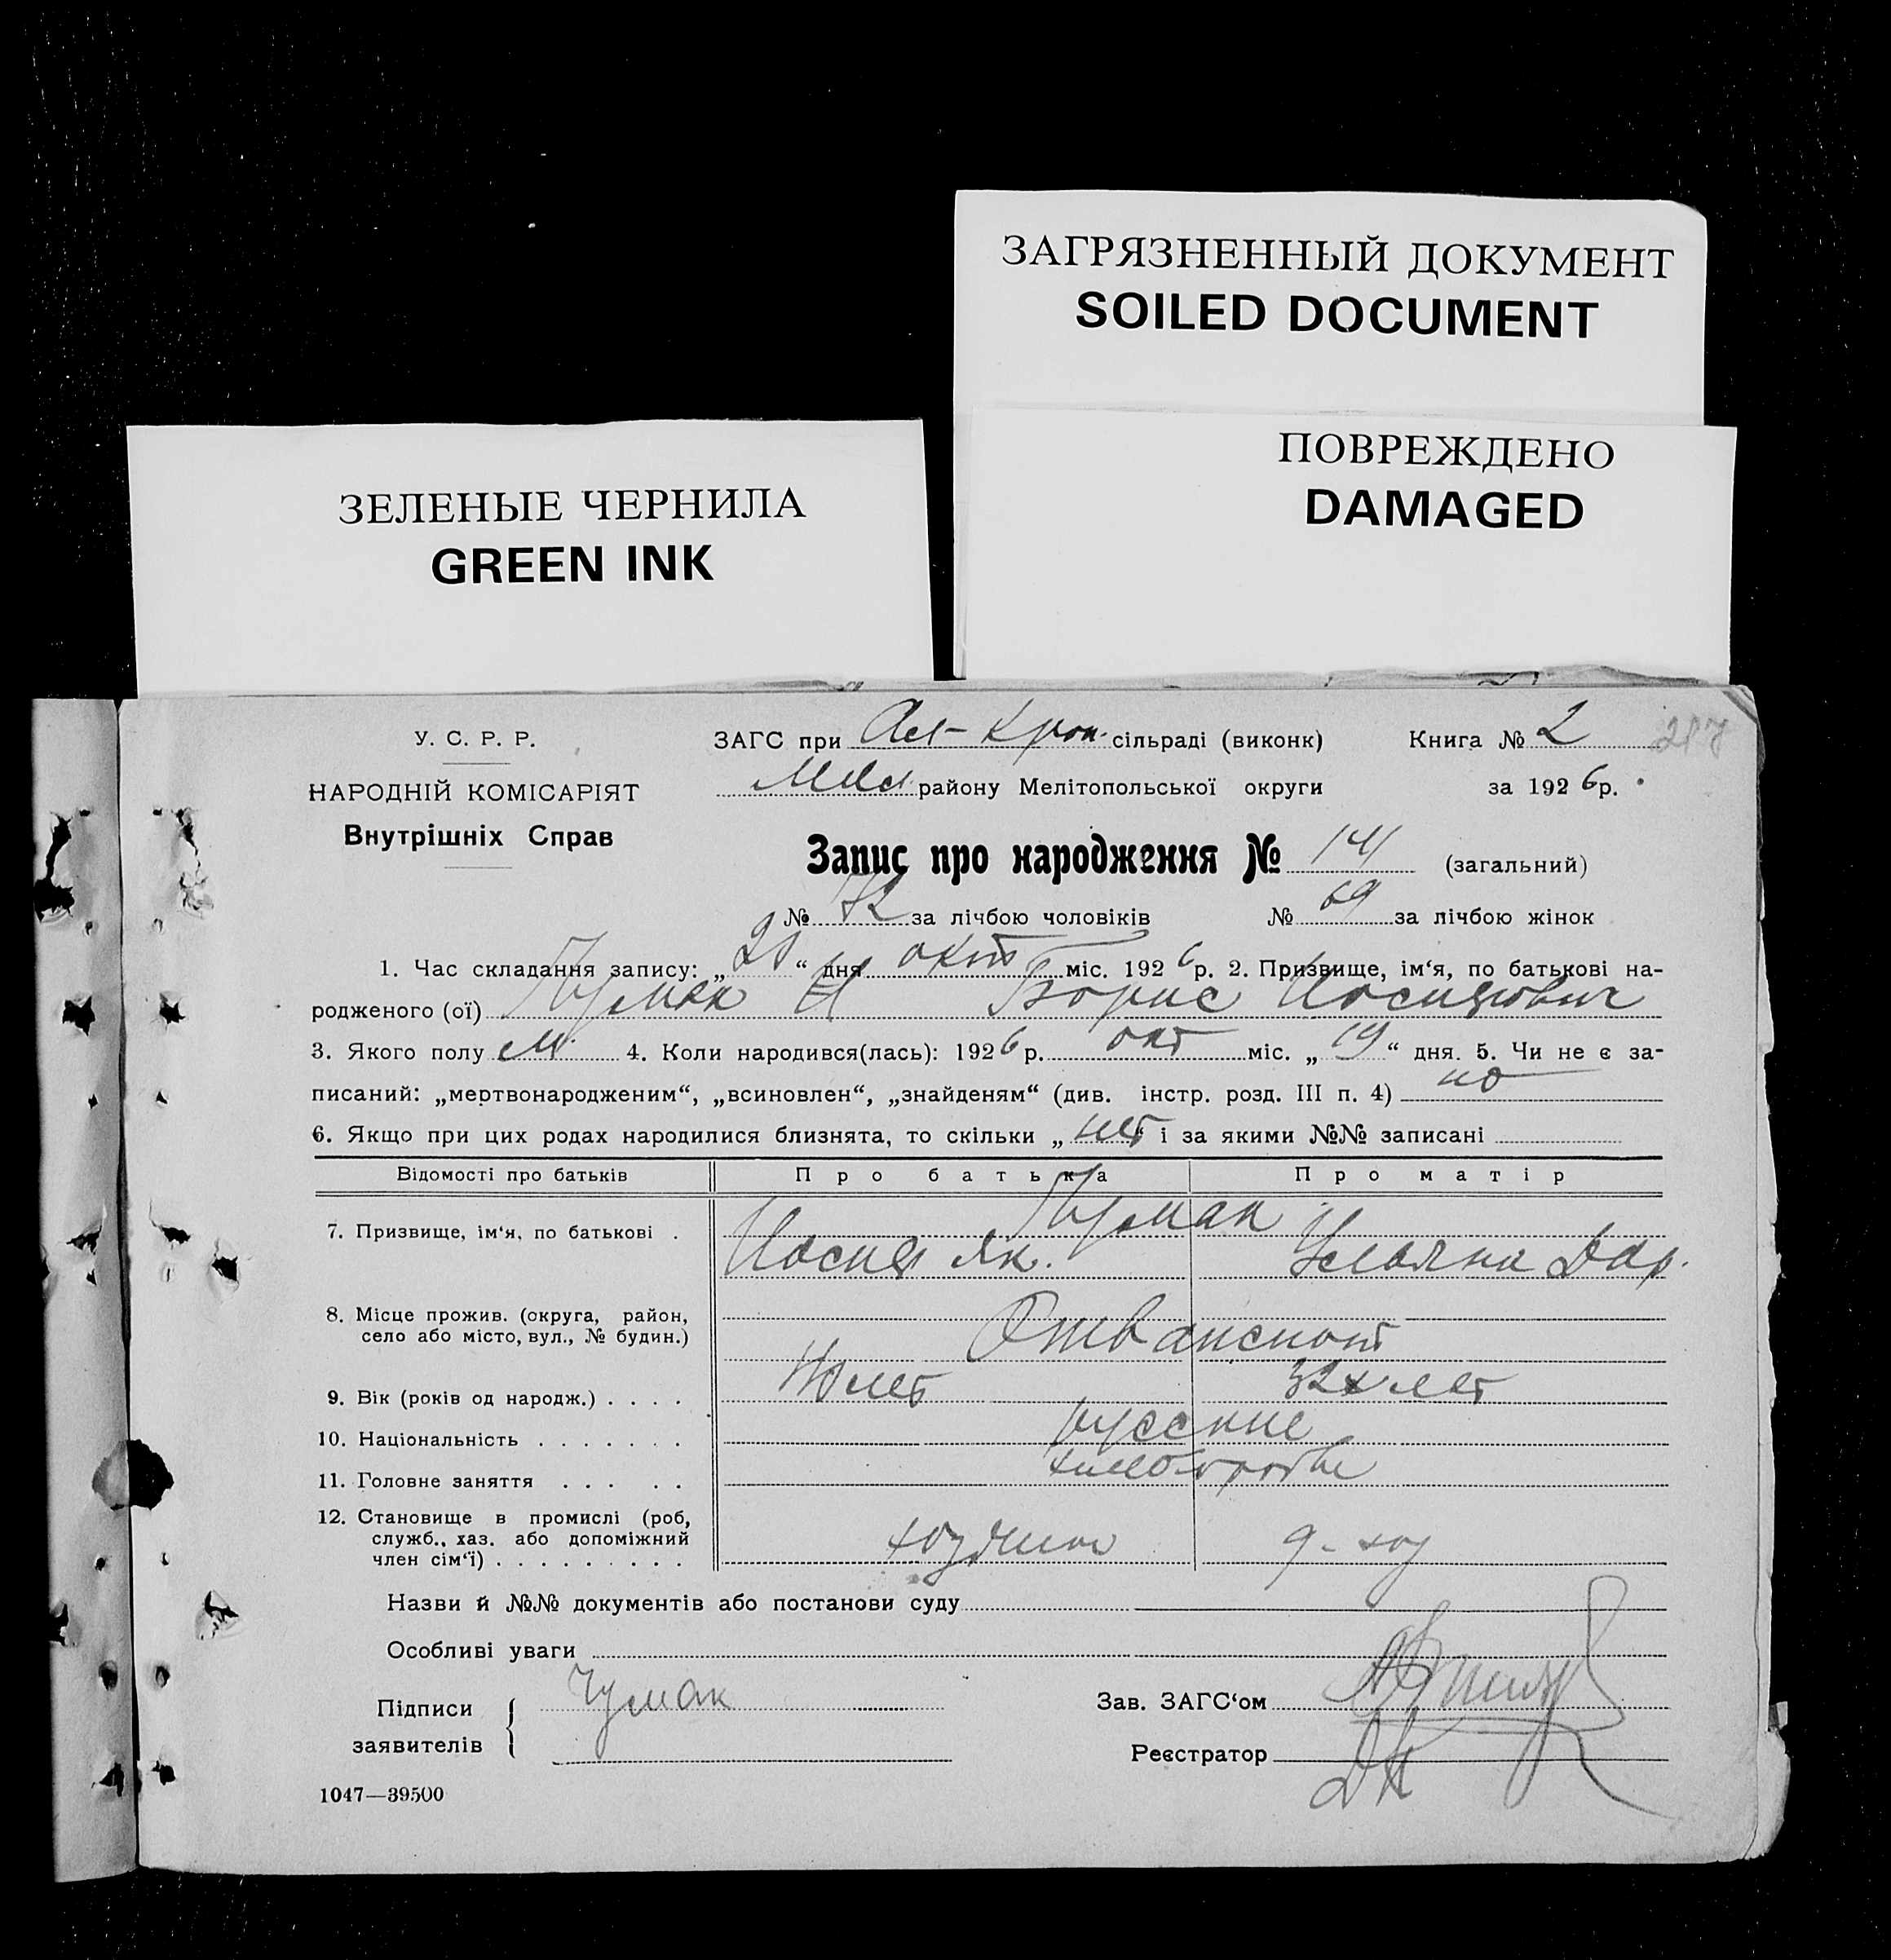 ЗАГРЯЗНЕННЫЙ ДОКУМЕНТ
SOILED DOCUMENT
ПОВРЕЖДЕНО
DAMAGED
ЗЕЛЕНЫЕ ЧЕРНИЛА
GREEN INK
У. С. Р. Р.
НАРОДНІЙ КОМІСАРІЯТ
Внутрішніх Справ
ЗАГС при сільраді (виконк) Книга № 2
району Мелітопольської округи за 1926 р.
Запис про народження № 141 (загальний)
№ 72 за лічбою чоловіків № 69 за лічбою жінок
1. Час складання запису: „ “ дня окт міс. 1926 р. 2. Призвище, ім‘я, по батькові на-
родженого (ої) Чумак Борис Иосифович
3. Якого полу м. 4. Коли народився(лась): 1926 р. окт міс. „19“ дня. 5. Чи не є за-
писаний: „мертвонародженим“, „всиновлен“, „знайденям“ (див. інстр. розд. III п. 4) но
6. Якщо при цих родах народилися близнята, то скільки „нет“ і за якими №№ записані
Відомості про батьків Про батька Про матір
7. Призвище, ім‘я, по батькові . Чумак
Иосиф Як. Ульяна
8. Місце прожив. (округа, район,
село або місто, вул., № будин.)
9. Вік (років од народж.) . . . . лет 32х лет
10. Національність . . . . . . . русские
11. Головне заняття . . . . . хлеборобы
12. Становище в промислі (роб,
служб., хаз. або допоміжний
член сім‘ї) . . . . . . . . . хозяин д-хоз
Назви й №№ документів або постанови суду
Особливі уваги
Підписи
заявителів Чумак
Зав. ЗАГС‘ом
Реєстратор
1047—39500